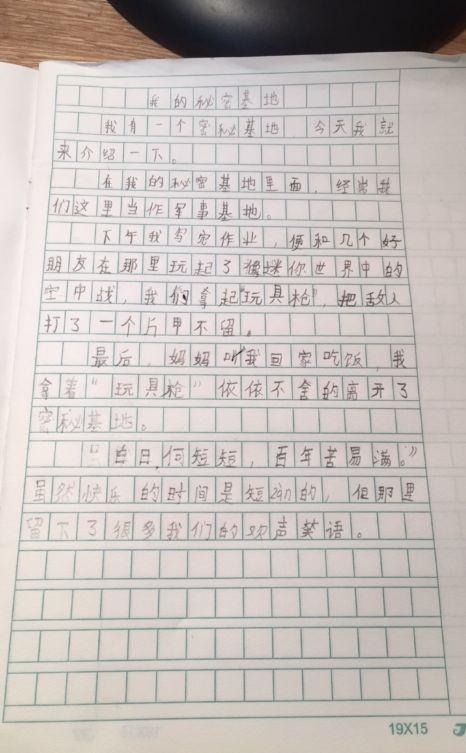 我的秘密基地
我有一个密秘基地，今天我就
来介绍一下。
在我的秘密基地里面，经常我
们这里当作军事基地。
下午我写完作业，便和几个好
朋友在那里玩起了像迷你世界中的
空中战，我们拿起"玩具枪"，把敌人
打了一个片甲不留。
最后，妈妈叫我回家吃饭，我
拿着"玩具枪"依依不舍的离开了
密秘基地。
白日何短短，百年苦易满。"
虽然快乐的时间是短zàn的，但那里
留下了很多我们的欢声笑语。
19X15